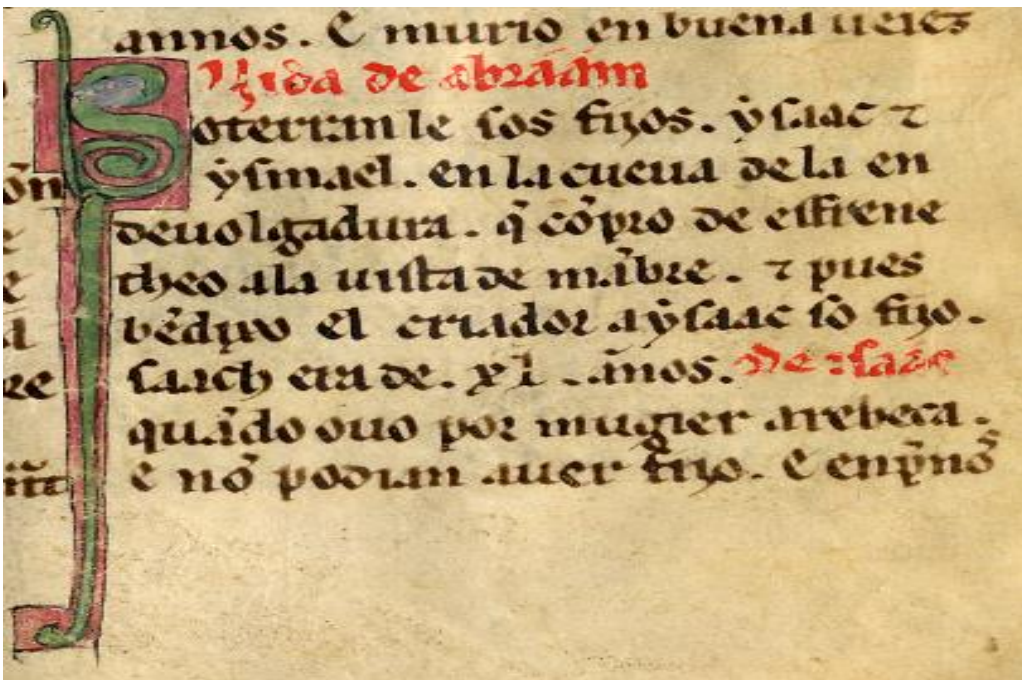 annos. E murio en buena ueiez
Vida de abraã̃m
Soterran le sos fijos. ẏsaac ⁊
ẏsmael. en la cueua dela en
deuolgadura. q̃ cõpro de effrene
theo ala uista de mãbre. ⁊ pues
bẽdixo el criador aẏsaac so fijo.
saach era de. xl. ãnos. De ısaac
quãdo ouo por mugier arebeca.
E nõ podian auer fijo. E